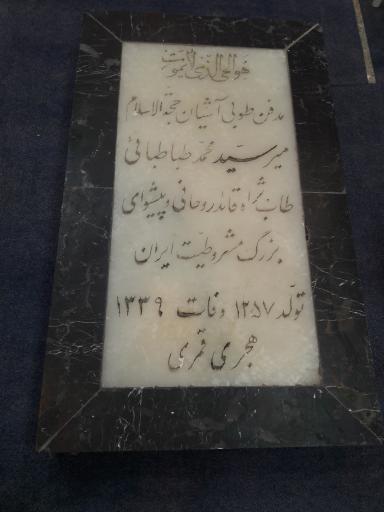 هو الحی الذی لایموت
مدفن طوبی آشیان حجة الاسلام
میر سید محمد طباطبائی
طاب ثراه قائد روحانی و پیشوای
بزرگ مشروطیت ایران
تولد ۱۲۵۷ وفات ۱۳۳۹
هجری قمری